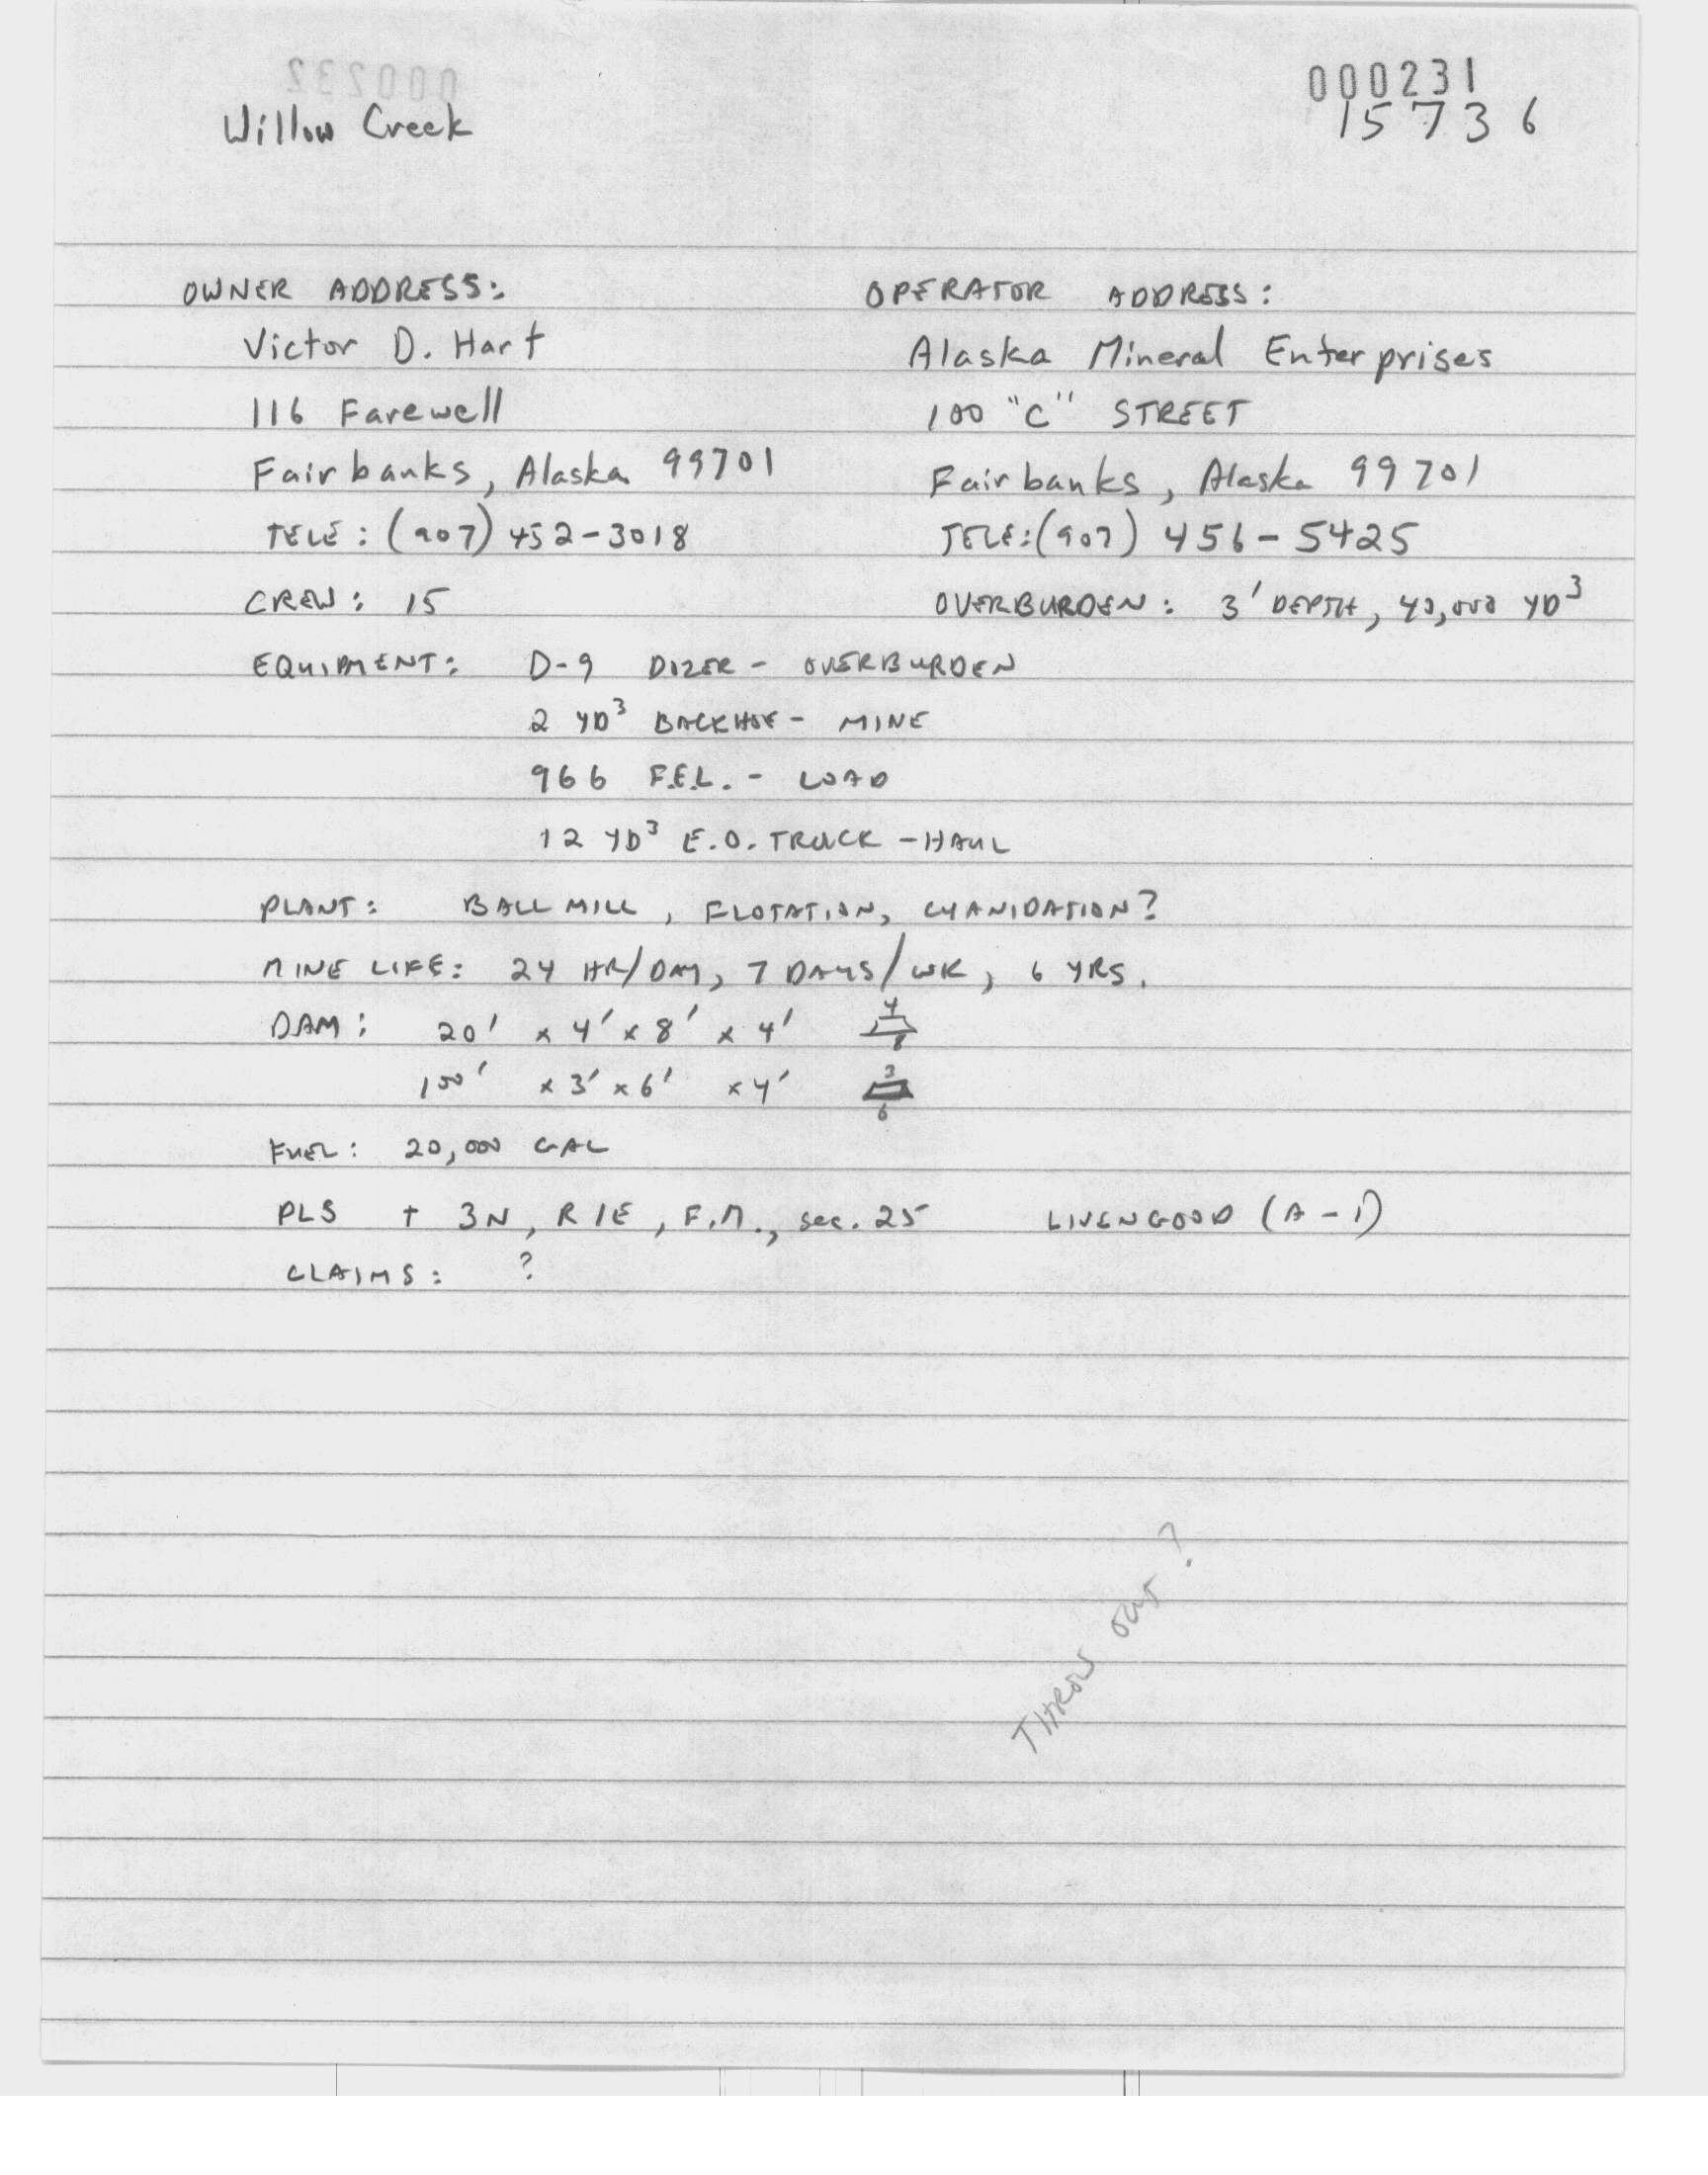 000231
Willow Creek
15736
OWNER ADDRESS:
Victor D. Hart
116 Farewell
Fairbanks, Alaska 99701
TELE: (907) 452-3018
CREW: 15
OPERATOR ADDRESS:
Alaska Mineral Enterprises
100 "C" STREET
Fairbanks, Alaska 99701
TELE: (907) 456-5425
OVERBURDEN: 3' DEPTH, 40,000 YD³
EQUIPMENT: D-9 DOZER - OVERBURDEN
2 YD³ BACKHOE - MINE
966 F.E.L. - LOAD
12 YD³ E.O. TRUCK - HAUL
PLANT: BALL MILL, FLOTATION, CYANIDATION?
MINE LIFE: 24 HR/DAY, 7 DAYS/WK, 6 YRS.
DAM: 20' x 4' x 8' x 4' 4 8
100' x 3' x 6' x 4' 3 6
FUEL: 20,000 GAL
PLS T 3N, R1E, F.M., sec. 25 LIVENGOOD (A-1)
CLAIMS: ?
THROW OUT?